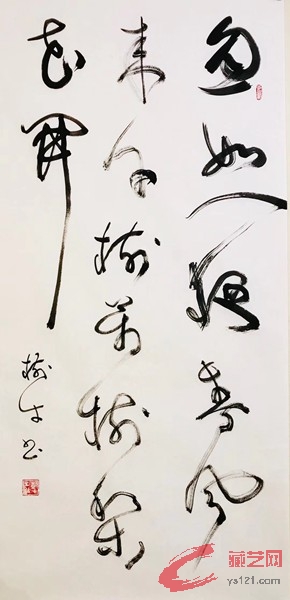 忽如一夜春风
来千树万树梨
花開
藏艺网
ys121.com